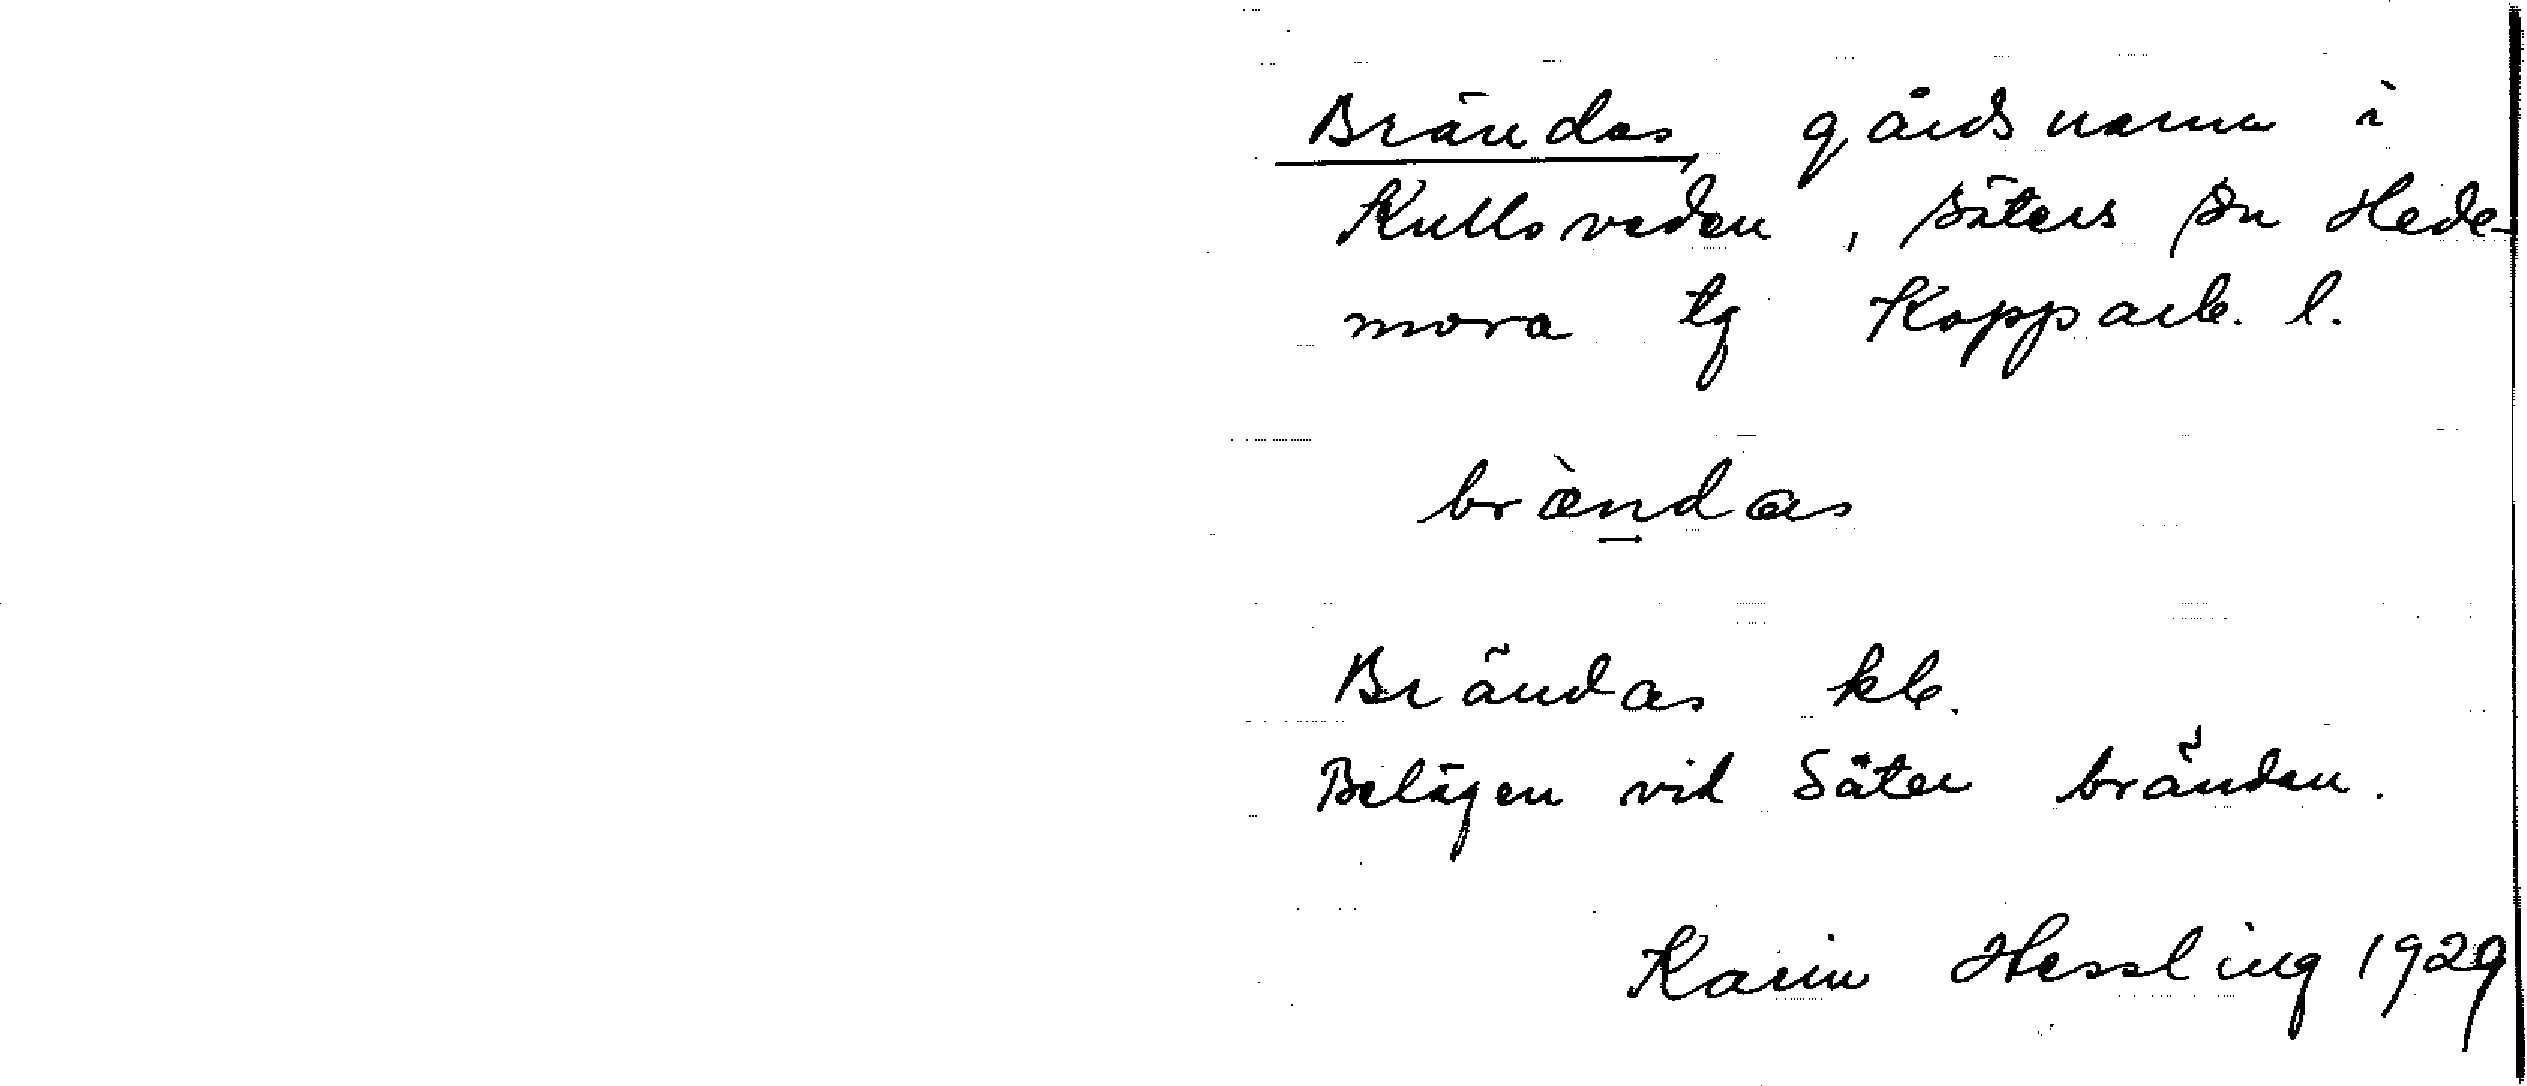 Brändas, gårdsnamn i
Kullsveden, Säters sn Hede-
mora tg Kopparb. l.
brὰndas
Brändas kb.
Belägen vid Säter bränden.
Karin Hessling 1929